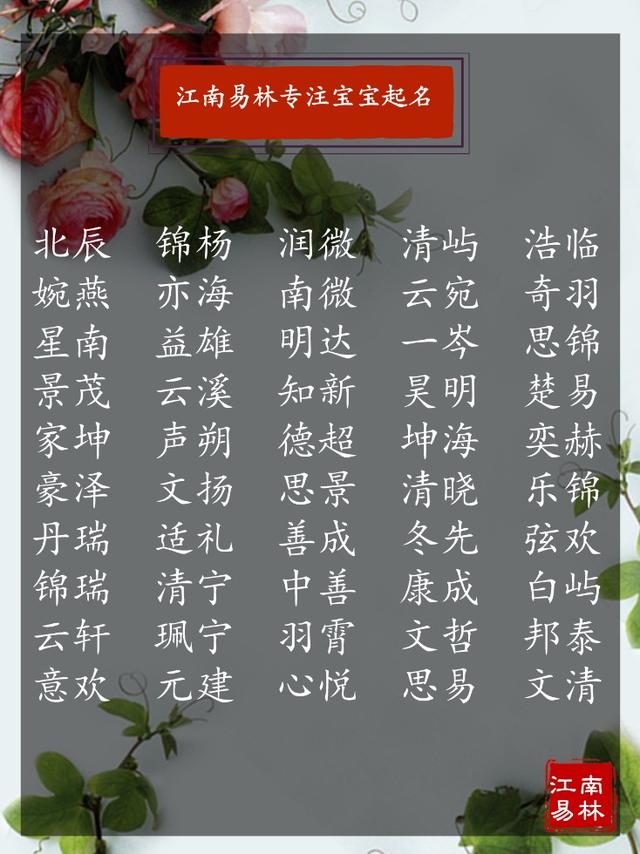 江南易林专注宝宝起名
北辰 锦杨 润微 清屿 浩临
婉燕 亦海 南微 云宛 奇羽
星南 益雄 明达 一岑 思锦
景茂 云溪 知新 昊明 楚易
家坤 声朔 德超 坤海 奕赫
豪泽 文扬 思景 清晓 乐锦
丹瑞 适礼 善成 冬先 弦欢
锦瑞 清宁 中善 康成 白屿
云轩 珮宁 羽霄 文哲 邦泰
意欢 元建 心悦 思易 文清
江南
易林